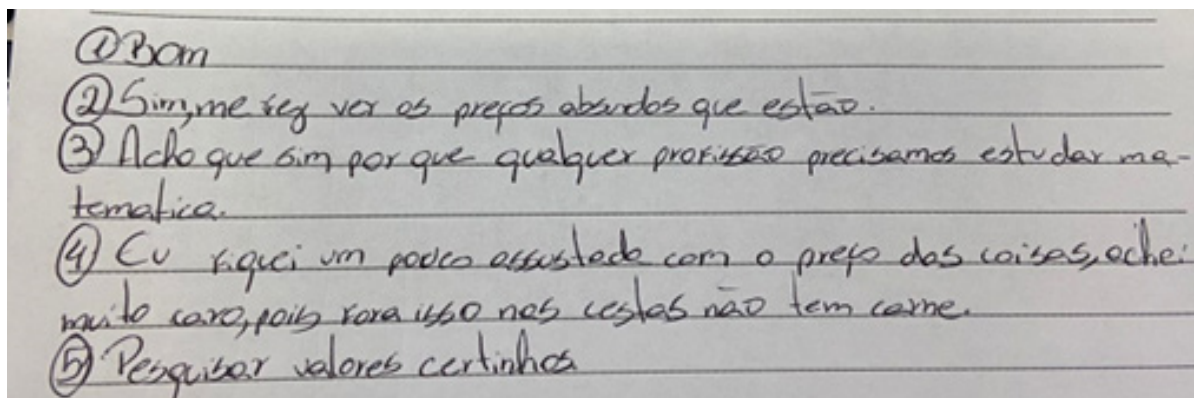 ① Bom
② Sim, me fez ver os preços absurdos que estão.
③ Acho que sim por que qualquer profissão precisamos estudar ma-
tematica.
④ Eu fiquei um pouco assustado com o preço das coisas, achei
muito caro, pois fora isso nas cestas não tem carne.
⑤ Pesquisar valores certinhos